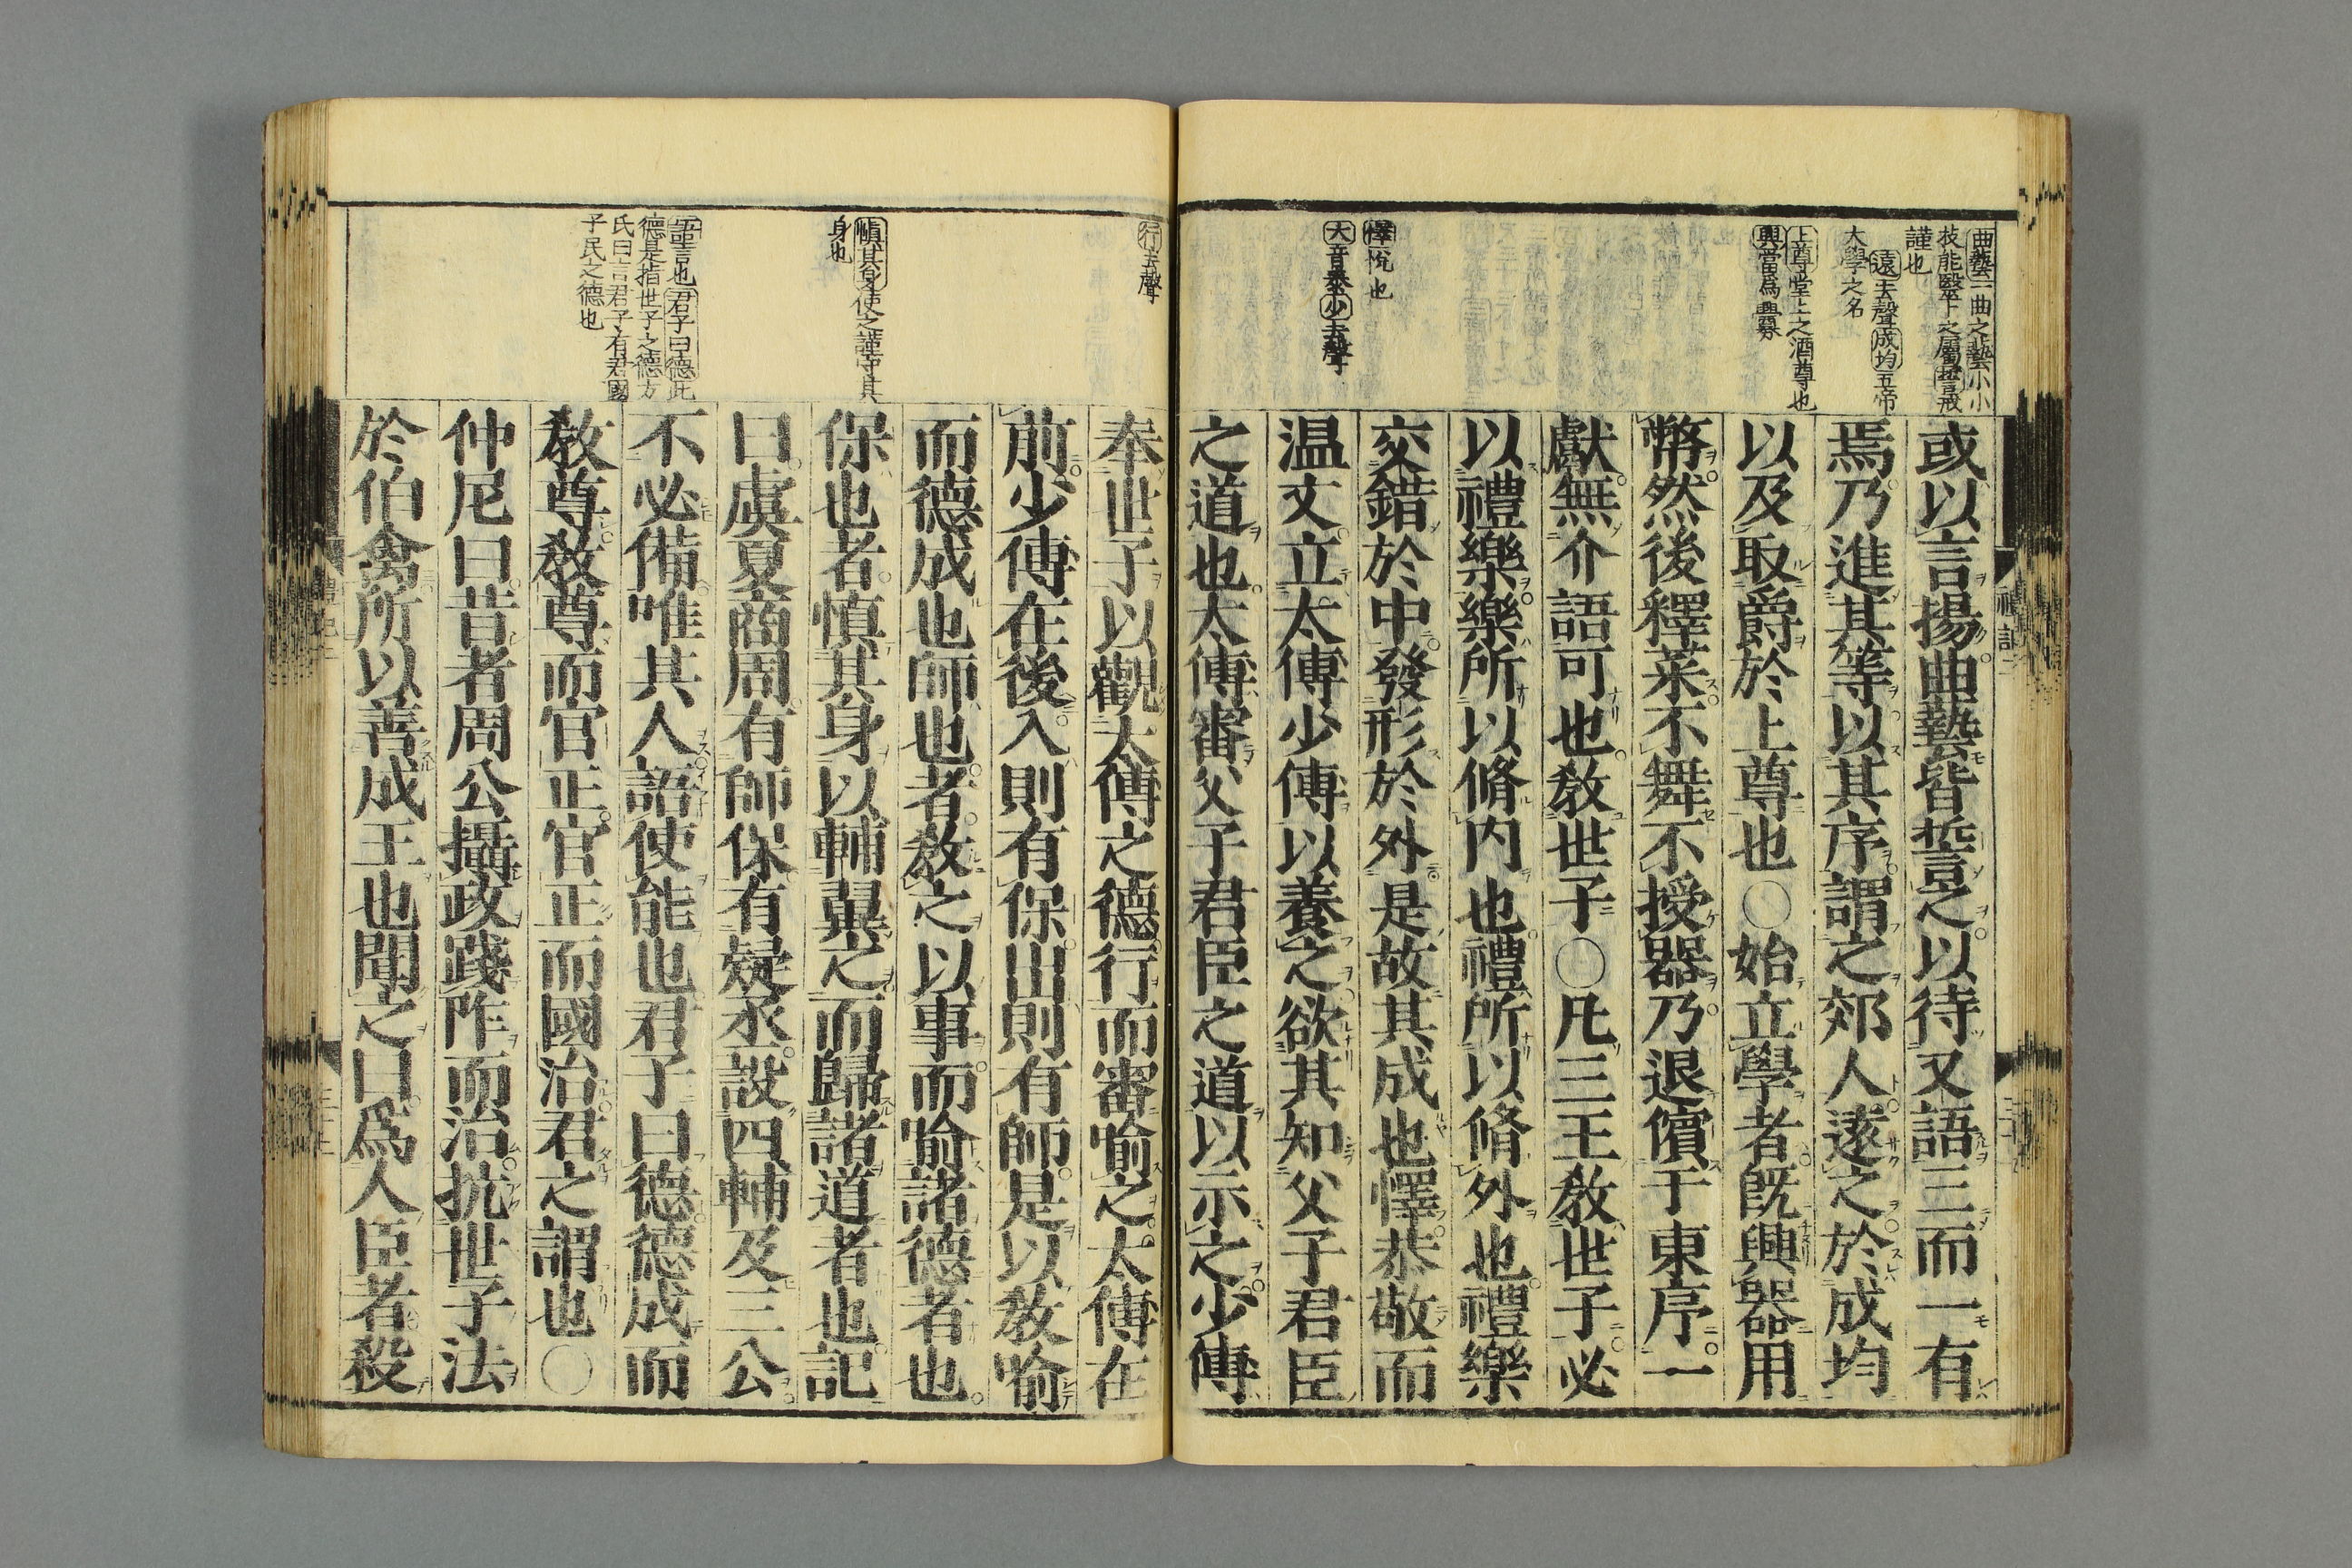 曲藝一曲之藝小小
技能醫卜之屬誓戒
謹也
遠去聲成均五帝
大學之名
上尊堂上之酒尊也
興當爲釁
懌悅也
大音泰少去聲
或以言揚曲藝皆誓之以待又語三而一有
焉乃進其等以其序謂之郊人遠之於成均
以及取爵於上尊也○始立學者旣興器用
幣然後釋菜不舞不授器乃退儐于東序一
獻無介語可也敎世子○凡三王敎世子必
以禮樂樂所以脩内也禮所以脩外也禮樂
交錯於中發形於外是故其成也懌恭敬而
温文立太傅少傅以養之欲其知父子君臣
之道也太傅審父子君臣之道以示之少傅
禮記二
行去聲
愼其身使之謹守其
身也
語言也君子曰德此
德是指世子之德方
氏曰言君子有君國
子民之德也
奉世子以觀太傅之德行而審喻之太傅在
前少傅在後入則有保出則有師是以敎喻
而德成也師也者敎之以事而喻諸德者也
保也者慎其身以輔翼之而歸諸道者也記
曰虞夏商周有師保有疑丞設四輔及三公
不必備唯其人語使能也君子曰德德成而
敎尊敎尊而官正官正而國治君之謂也○
仲尼曰昔者周公攝政踐阼而治抗世子法
於伯禽所以善成王也聞之曰爲人臣者殺